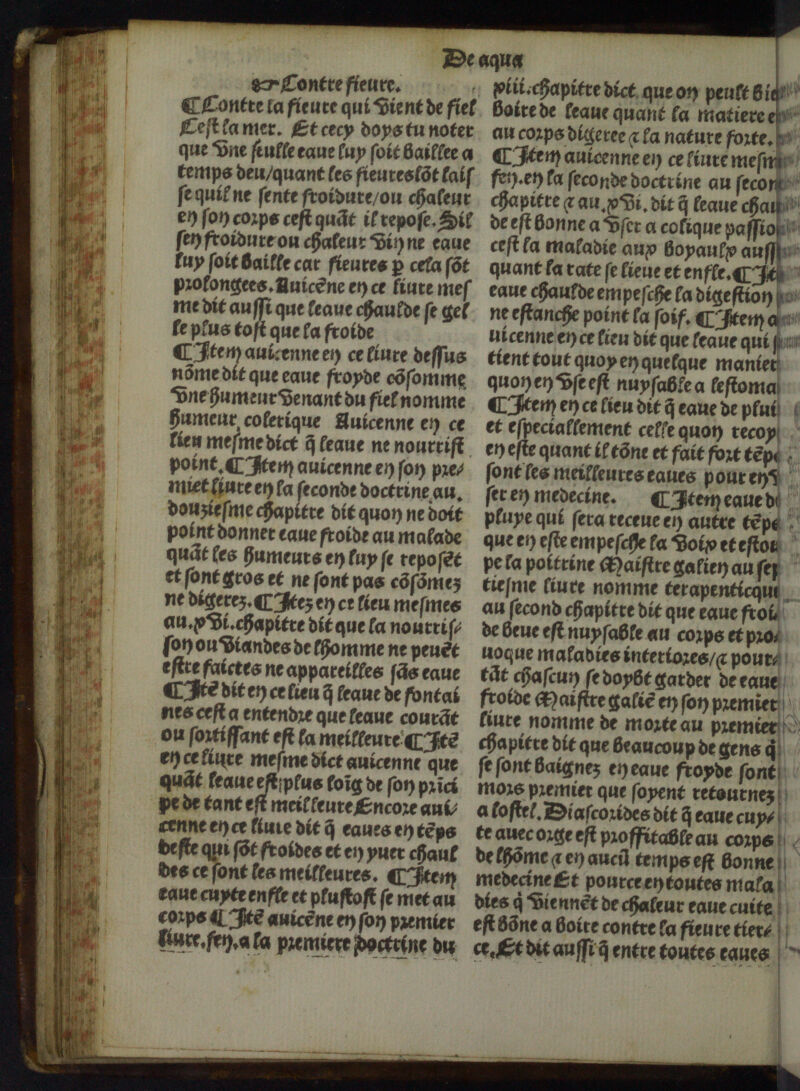 De aqua
☞ Contre fieure.
⁋ Contre la fieure qui vient de fiel
Cest la mer. Et cecy doys tu noter
que vne seulle eaue luy soit baillee a
temps deu/quant les fieures lõt lais
se quil ne sente froidure/ou chaleur
en son corps cest quãt il repose. Sil
sen froidure ou chaleur vin ne eaue
luy soit baille car fieures p cela sõt
prolongees. Auicẽne en ce liure mes
me dit aussi que leaue chaulde se gel
le plus tost que la froide
⁋ Item auicenne en ce liure dessus
nõme dit que eaue froyde cõsomme
vne humeur venant du fiel nomme
humeur colerique Auicenne en ce
lieu mesme dict q̃ leaue ne nourrist
point. ⁋ Item auicenne en son pre⸗
mier liure en la seconde doctrine au.
douziesme chapitre dit quon ne doit
point donner eaue froide au malade
quãt les humeurs en luy se reposẽt
et sont gros et ne sont pas cõsõmez
ne digerez. ⁋ Itez en ce lieu mesmes
au. xvi. chapitre dit que la nourris⸗
son ou viandes de lhomme ne peuẽt
estre faictes ne appareilles sãs eaue
⁋ Itẽ dit en ce lieu q̃ leaue de fontai
nes cest a entendre que leaue courãt
ou sortissant est la meilleure ⁋ Itẽ
en ce liure mesme dict auicenne que
quãt leaue est plus loĩg de son prĩci
pe de tant est meilleure Encore aui⸗
cenne en ce liure dit q̃ eaues en tẽps
deste qui sõt froides et en yuer chaul
des ce sont les meilleures. ⁋ Item
eaue cuyte enfle et plustost se met au
corps ⁋ Itẽ auicẽne en son premier
liure. fen. a la premiere doctrine du
xiii. chapitre dict que on peult bi
boire de leaue quant la matiere e
au corps digeree ⁊ la nature forte.
⁋ Item auicenne en ce liure mesm
fen. en la seconde doctrine au secon
chapitre ⁊ au. xvi. dit q̃ leaue chau
de est bonne a vser a colique passio
cest la maladie aux boyaulx auss
quant la rate se lieue et enfle. ⁋ It
eaue chaulde empesche la digestion
ne estanche point la soif. ⁋ Item a
uicenne en ce lieu dit que leaue qui
tient tout quoy en quelque manier
quon en vse est nuysable a lestoma
⁋ Item en ce lieu dit q̃ eaue de plui
et especiallement celle quon recoy
en este quant il tõne et fait fort tẽpe
sont les meilleures eaues pour en v
ser en medecine. ⁋ Item eaue de
pluye qui sera receue en autre tẽpe
que en este empesche la voix et estou
pe la poitrine Maistre galien au sep
tiesme liure nomme terapenticque
au second chapitre dit que eaue froi
de beue est nuysable au corps et pro⸗
uoque maladies interiores/⁊ pour⸗
tãt chascun se doybt garder de eaue
froide Maistre galiẽ en son premier
liure nomme de morte au premier
chapitre dit que beaucoup de gens q̃
se sont baignez en eaue froyde sont
mors premier que soyent retournez
a lostel. Diascorides dit q̃ eaue cuy⸗
te auec orge est proffitable au corps
de lhõme ⁊ en aucũ temps est bonne
medecine Et pource en toutes mala
dies q̃ viennẽt de chaleur eaue cuite
est bõne a boire contre la fieure tier⸗
ce. Et dit aussi q̃ entre toutes eaues